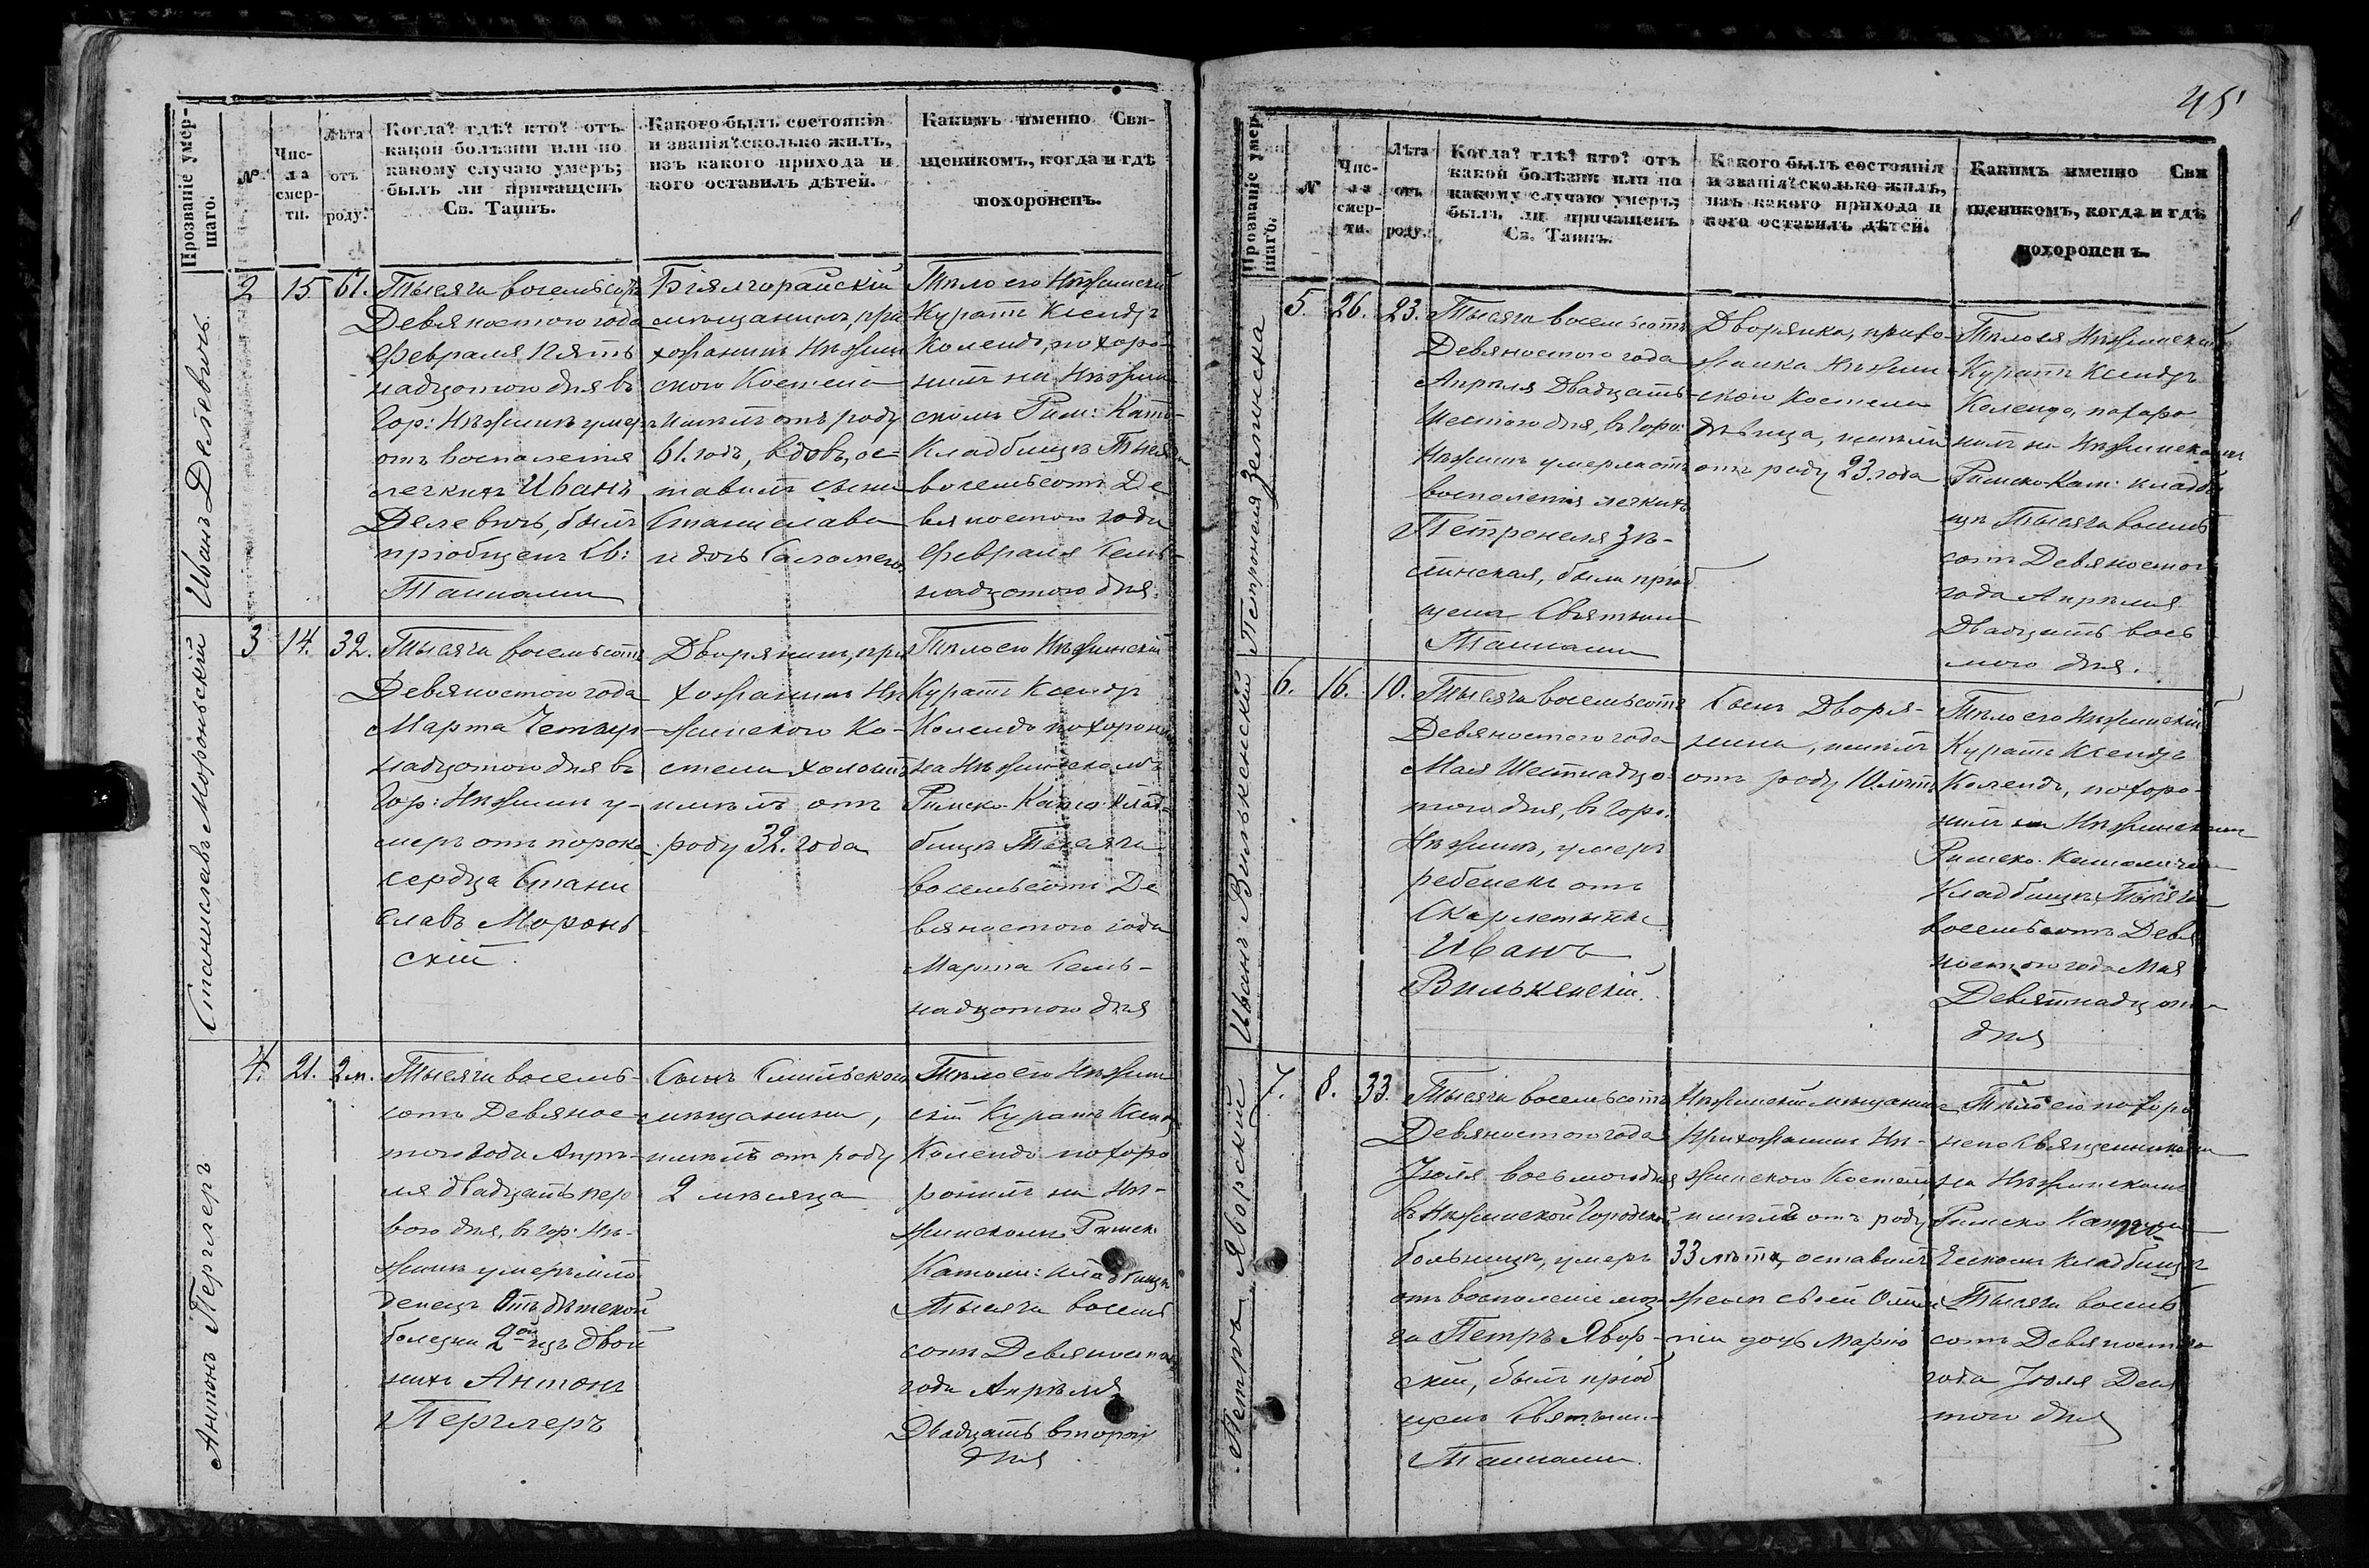 Прозваніе умер-
шаго.
№
Чис-
ла
смер-
ти.
Лѣта
отъ
роду.
Когда? гдѣ? кто? отъ
какой болѣзни или по
какому случаю умеръ;
былъ ли причащенъ
Св. Таинъ.
Какого былъ состоянія
и званія? сколько жилъ,
изъ какого прихода и
кого оставилъ дѣтей.
Какимъ именно Свя-
щенникомъ, когда и гдѣ
похороненъ.
Иванъ Делевичъ.
2
15.
61.
Тысяча восемьсотъ
Девяностого года
Февраля Пят-
надцотого дня въ
Гор: Нѣжинѣ умеръ
отъ воспаленія
легкихъ Иванъ
Делевичъ, былъ
пріобщенъ Св:
Таинами
Бѣлгорайскій
мѣщанинъ, при
хожанинъ Нѣжин
ского Костела
имѣлъ отъ роду
61. годъ, вдовъ, ос-
тавилъ сына
Станислава
и дочь Саломею.
Тѣло его Нѣжинскій
Куратъ Ксендзъ
Колендо, похоро-
нилъ на Нѣжин
скомъ Рим: Като-
Кладбищѣ Тысяча
восемьсотъ Де
вяностого года
Февраля Семь-
надцотого дня.
Станиславъ Мороньскій
3
14.
32.
Тысяча восемьсотъ
Девяностого года
Марта Четыр-
надцотого дня въ
Гор: Нѣжинѣ у-
меръ отъ порока
сердца Стани
славъ Моронь
скій.
Дворянинъ, при
хожанинъ Нѣ
жинского Ко-
стела холостъ
имѣлъ отъ
роду 32. года
Тѣло его Нѣжинскій
Куратъ Ксендзъ
Колендо похоронилъ
на Нѣжинскомъ
Римско-Като. Клад-
бищѣ Тысяча
восемьсотъ Де
вяностого года
Марта Семь-
надцотого дня
Антонъ Перглеръ
4.
21.
2 м.
Тысяча восемь-
сотъ Девянос-
того года Апрѣ-
ля двадцать пер
вого дня, въ Гор: Нѣ-
жинѣ умеръ мла
денецъ отъ дѣтской
болезни 2ой изъ двой
нихъ Антонъ
Перглеръ
Сынъ Смильского
мѣщанина,
имѣлъ отъ роду
2 мѣсяца
Тѣло его Нѣжин
скій Куратъ Ксендзъ
Колендо похоро
ронилъ на Нѣ-
жинскомъ Римск.
Католи: кладбищѣ
Тысяча восемь
сотъ Девяностого
года Апрѣля
Двадцать второй
дня
45
Прозваніе умер-
шаго.
№
Чис-
ла
смер-
ти.
Лѣта
отъ
роду.
Когда? гдѣ? кто? отъ
какой болѣзни или по
какому случаю умеръ;
былъ ли причащенъ
Св. Таинъ.
Какого былъ состоянія
и званія? сколько жилъ,
изъ какого прихода и
кого оставилъ дѣтей.
Какимъ именно Свя
щенникомъ, когда и гдѣ
похороненъ.
Петронеля
5.
26.
23.
Тысяча восемьсотъ
Девяностого года
Апрѣля Двадцать
Шестого дня, въ Горо.
Нѣжинѣ умерла отъ
восполенія легкихъ
Петронеля Зѣ-
линская, была пріоб
щена Святыми
Таинами
Дворянка, прихо-
жанка Нѣжин
ского Костела
дѣвица, имѣла
отъ роду 23. года
Тѣло ея Нѣжинскій
Куратъ Ксендзъ
Колендо, похоро
нилъ на Нѣжинскомъ
Римско-Кат: кладби
щѣ Тысяча восемь
сотъ Девяностого
года Апрѣля
Двадцать вось
мого дня.
Иванъ Вилькенскій
6.
16.
10.
Тысяча восемьсотъ
Девяностого года
Мая Шестнадцо-
того дня, въ Горо.
Нѣжинѣ, умеръ
ребенекъ отъ
Скарлетыны
Иванъ
Вилькенскій.
Сынъ Дворя-
нина, имѣлъ
отъ роду 10. лѣтъ
Тѣло его Нѣжинскій
Куратъ Ксендзъ
Колендо, похоро-
нилъ на Нѣжинскомъ
Римско-Католичес
Кладбищѣ Тысяча
восемьсотъ Девя
ностого года Мая
Девятнадцотого
дня
Петръ Яворскій
7.
8.
33.
Тысяча восемьсотъ
Девяностого года
Іюля восьмого дня
въ Нѣжинской Городской
больницѣ, умеръ
отъ восполеніе моз
га Петръ Явор-
скій, былъ пріоб
щенъ Святыми
Таинами.
Нѣжинскій мѣщанинъ
прихожанинъ Нѣ-
жинского Костела
имѣлъ отъ роду
33 лѣтъ, оставилъ
дочь Марію
Тѣло его похоро
нено Священникомъ
на Нѣжинскомъ
Римско Католи
ческомъ кладбищѣ
Тысяча восемь
сотъ Девяностого
года Іюля Девя
того дня